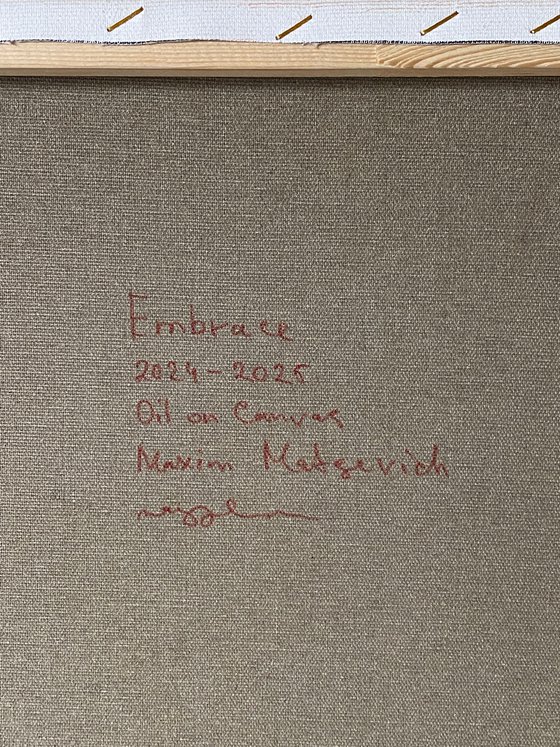 Embrace
2024-2025
Oil on Canvas
Maxim Matsevich